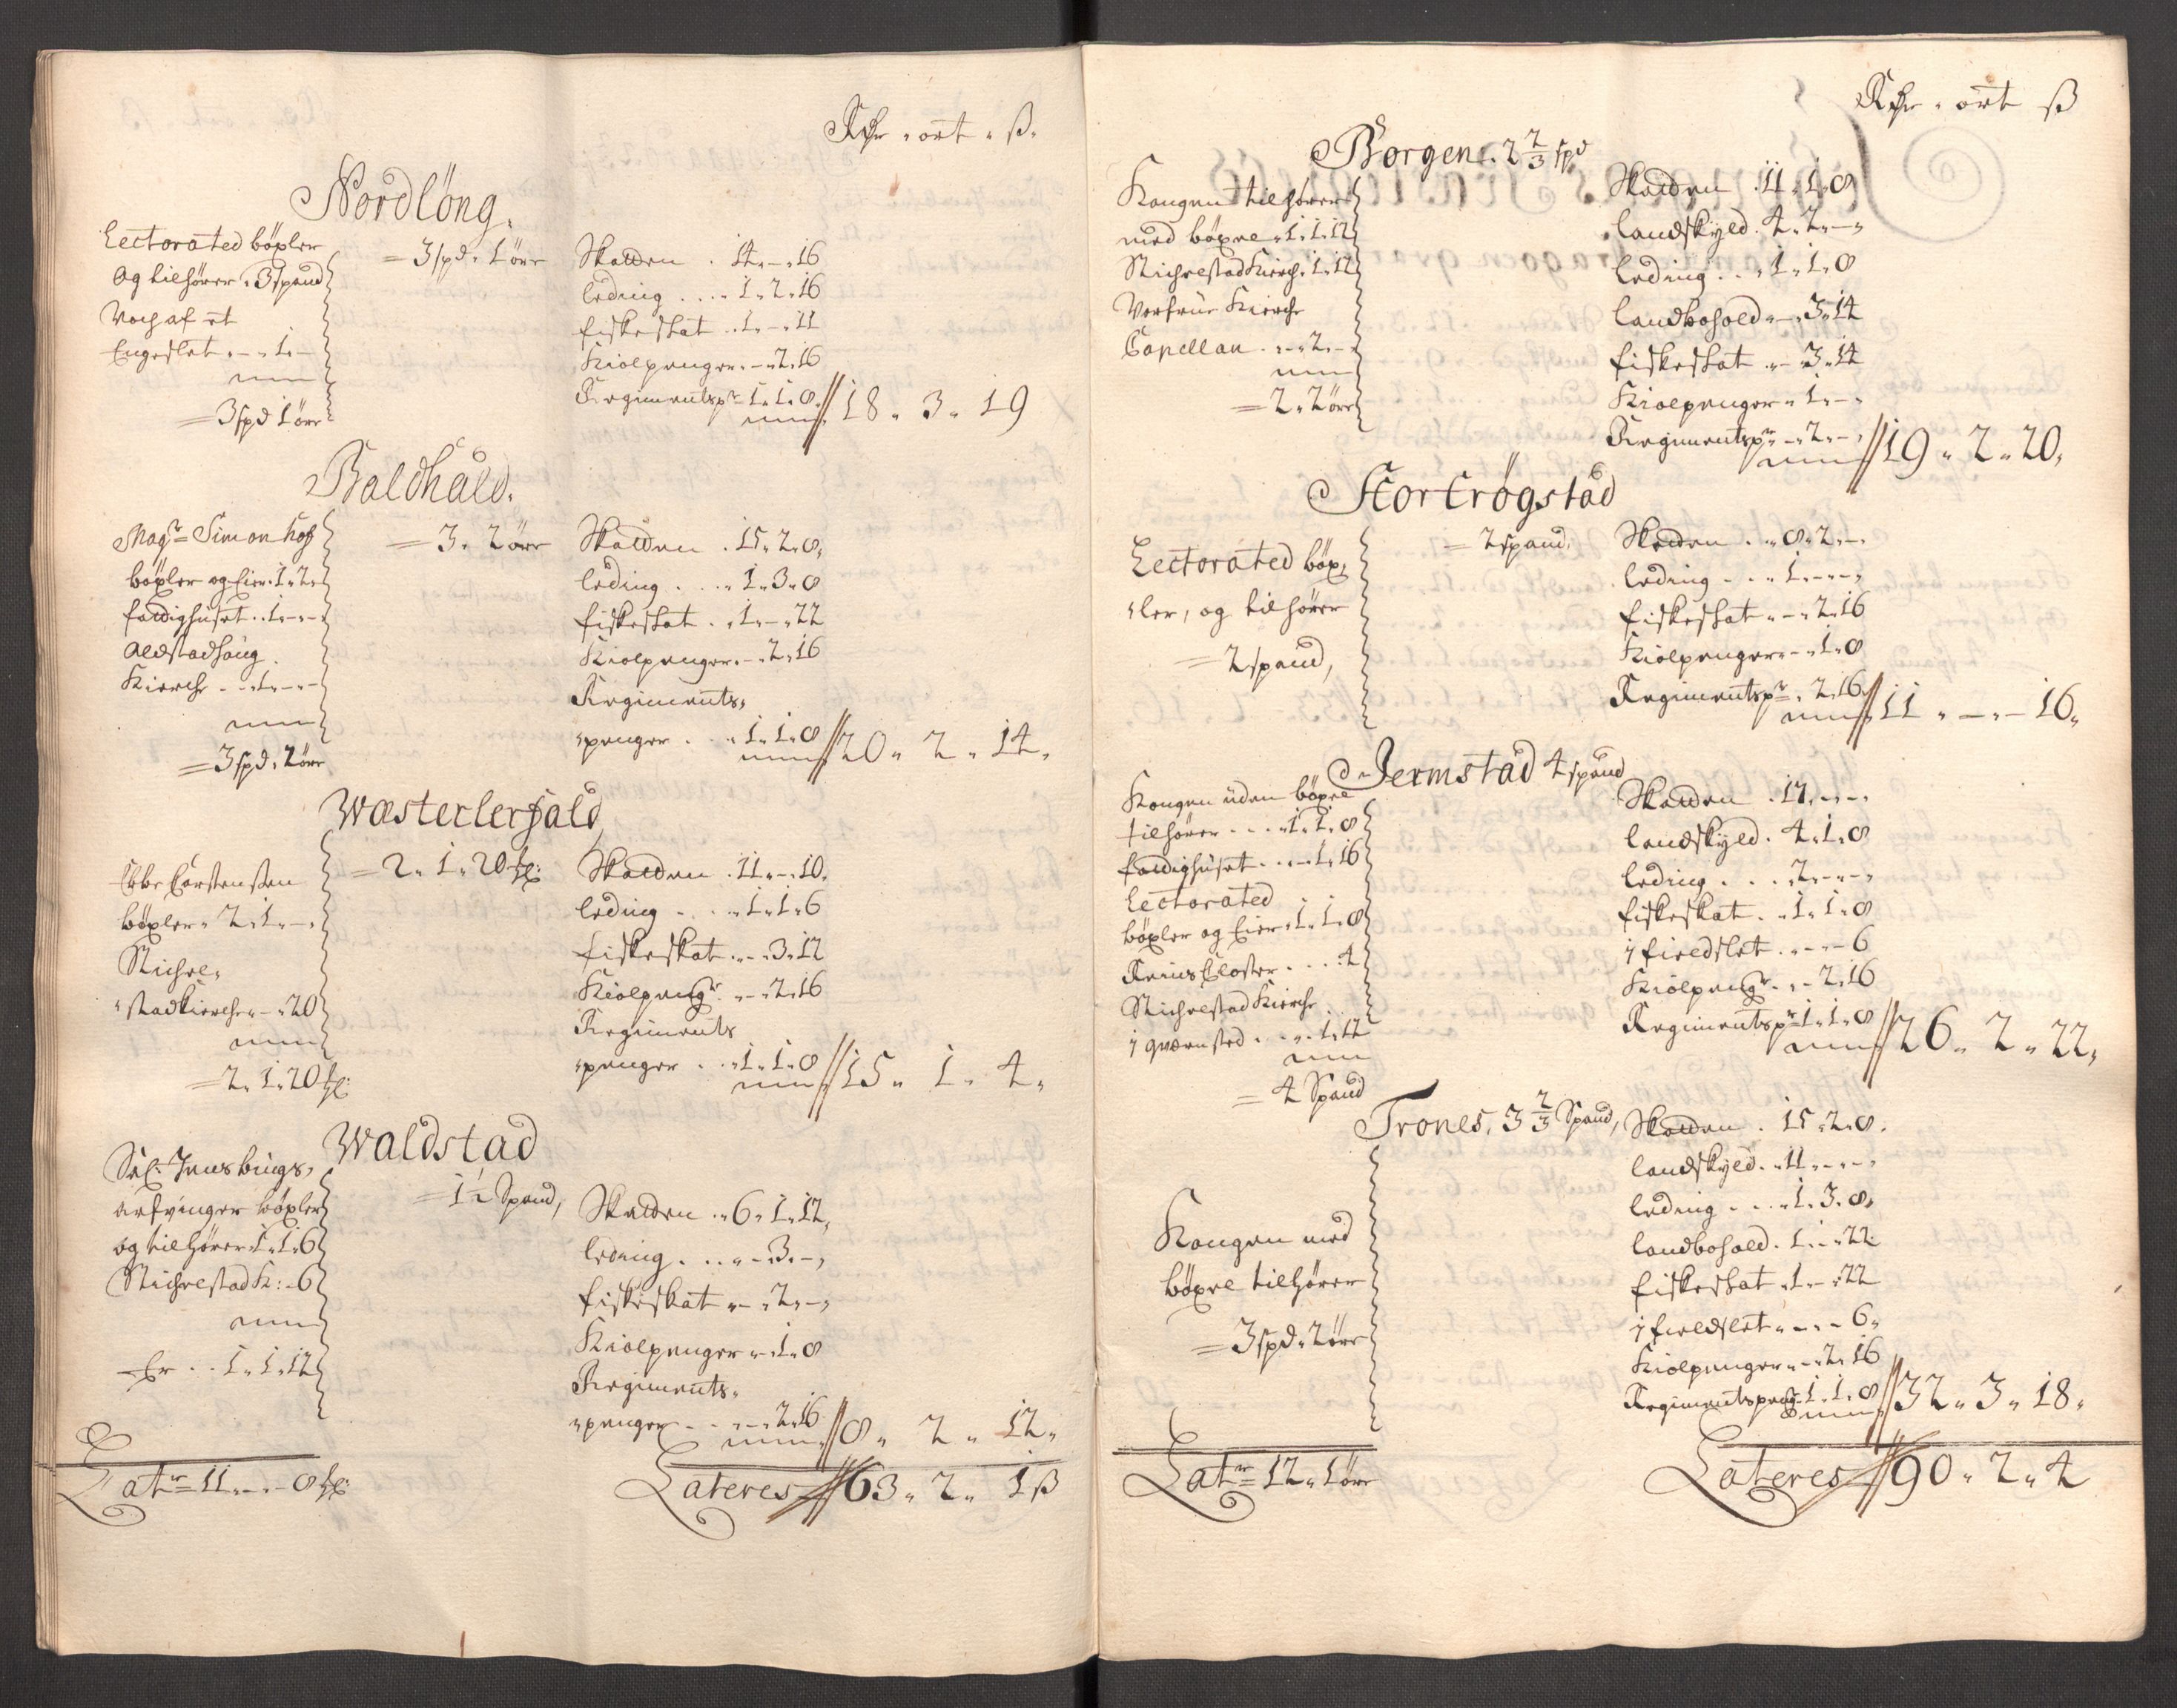 Rdr " ort " ß "
Nordlöng.
Lectorated böxler
Og tilhörer " 3 spand
Noch af et
Engeslet " – " 1 " –
= 3 spd 1 öre
= 3 spd " 1 öre
Skatten . 14 " – " 16
leding . . . " 1 " 2 " 16
fiskeskat . . 1 " – " 11
Kiölpenger " – " 2 " 16
Regimentspr = 1 " 1 " 8 " 18 " 3 " 19
Baldhald.
Magr = Simon Hof
böxler og Eier " 1 " 2 "
fattighuset . . 1 " – " –
Aldstadhaug
Kierche . . " 1 " – " –
= 3 spd " 2 öre
= 3 " 2 öre
Skatten . 15 " 2 " 8 "
leding . . . " 1 " 3 " 8
fiskeskat . " 1 " – " 22
Kiölpenger " – " 2 " 16
Regiments "
" penger . . " 1 " 1 " 8 20 " 2 " 14 "
Wæsterlerfald
Ebbe Carstensen
böxler " 2 " 1 " – "
Stichel "
" stadkierche " – " 20
= 2 " 1 " 20
= 2 " 1 " 20
Skatten . 11 " – " 10 "
leding . . . " 1 " 1 " 6
fiskeskat . " – " 3 " 12
Kiölpengr " – " 2 " 16
Regiments
" penger . . " 1 " 1 " 8 15 " 1 " 4 "
Waldstad
Sal: Jens bings "
arfvinger böxler
og tilhörer " 1 " 1 " 6
Stichelstad K: – 6
Er . . 1 " 1 " 12
= 1½ Spand,
Skatten . " 6 " 1 " 12 "
leding . . . " – " 3 " – "
fiskeskat " – " 2 " – "
Kiölpenger " – " 1 " 8
Regiments "
" penger . . " – " 2 " 16 8 " 2 " 12 "
Latr = 11 " – " – 8
Lateres 63 " 2 " 1 ß
Rdr " ort ß
Borgen . 2 2/3 spd
Kongen tilhörer
med böxel " 1 " 1 " 12
Stichelstad Kirch " 1 " 12
Vorfrue Kierche
Capellan . " – " 2 " –
= 2 " 2 öre
Skatten . 11 " 1 " 8
landskyld . 4 " 2 " – "
leding . . " 1 " 1 " 8
landbohold " – " 3 " 14
fiskeskat " – 3 " 14
Kiölpenger " 1 " – "
Regimentspr " – " 2 " – " 19 " 2 " 20 "
Stortrögstad
Lectorated böx "
" ler, og tilhörer
= 2 spand,
= 2 spand,
Skatten . " 8 " 2 " – "
leding . . " 1 " – " – "
fiskeskat " – " 2 " 16
Kiölpenger " – " 1 " 8
Regimentspr = " 2 " 16 11 " – " – 16 "
Jermstad 4 spand
Kongen uden böxel
tilhörer . . . " 1 " 1 " 8
fattighuset . . " – " 1 " 16
Lectorated
böxler og Eier " 1 " 1 " 8
Reins Closter . . . " 4
Stichelstad Kierche
i qværnsted . . " – " 1 " 12
= 4 Spand
Skatten . 17 " – " – "
landskyld . 4 " 1 " 8
leding . . . " 2 " – " – "
fiskeskat . " 1 " 1 " 8
i fieldslet . " – " – 6
Kiölpengr . " – 2 " 16
Regimentspr " 1 " 1 " 8 26 " 2 " 22 "
Trones, 3 2/3 Spand,
Kongen med
böxel tilhörer
= 3 spd " 2 öre
Skatten . 15 " 2 " 8 .
landskyld . " 11 " – " – "
leding . . . " 1 " 3 " 8 "
landbohold . 1 " – " 22
fiskeskat " 1 " – " 22
i fieldslet " – " – 6 "
Kiölpenger " – " 2 " 16
Regimentspeng " 1 " 1 " 8 32 " 3 " 18 "
Latr = 12 " 1 öre
Lateres 90 " 2 " 4